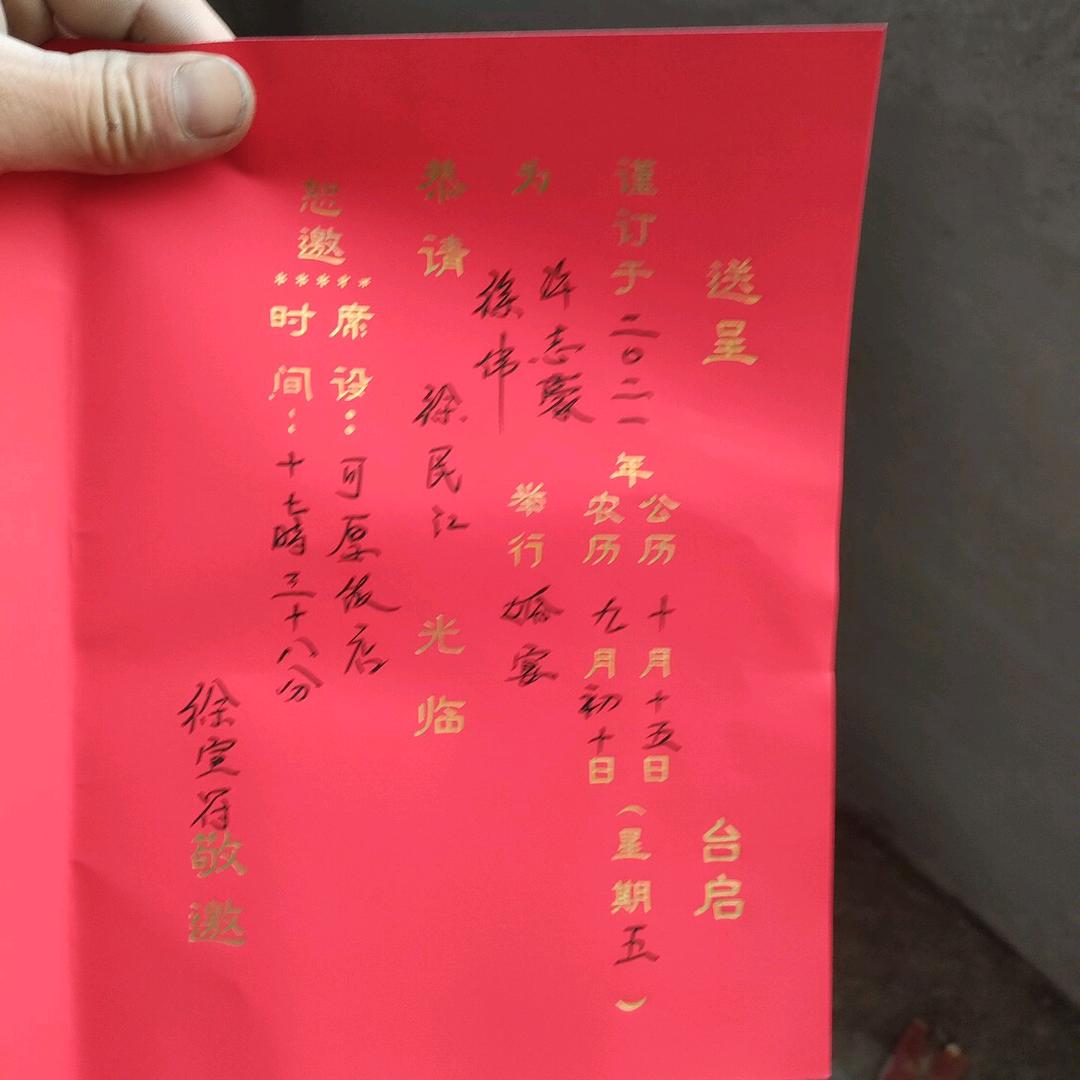 送呈 台启
谨订于二〇二一年
公历十月十五日
农历九月初十日
(星期五)
为
许志豪
徐伟
举行婚宴
恭请 徐民江 光临
恕邀
*****
席设：可厚饭店
时间：十七時三十八分
徐 敬邀